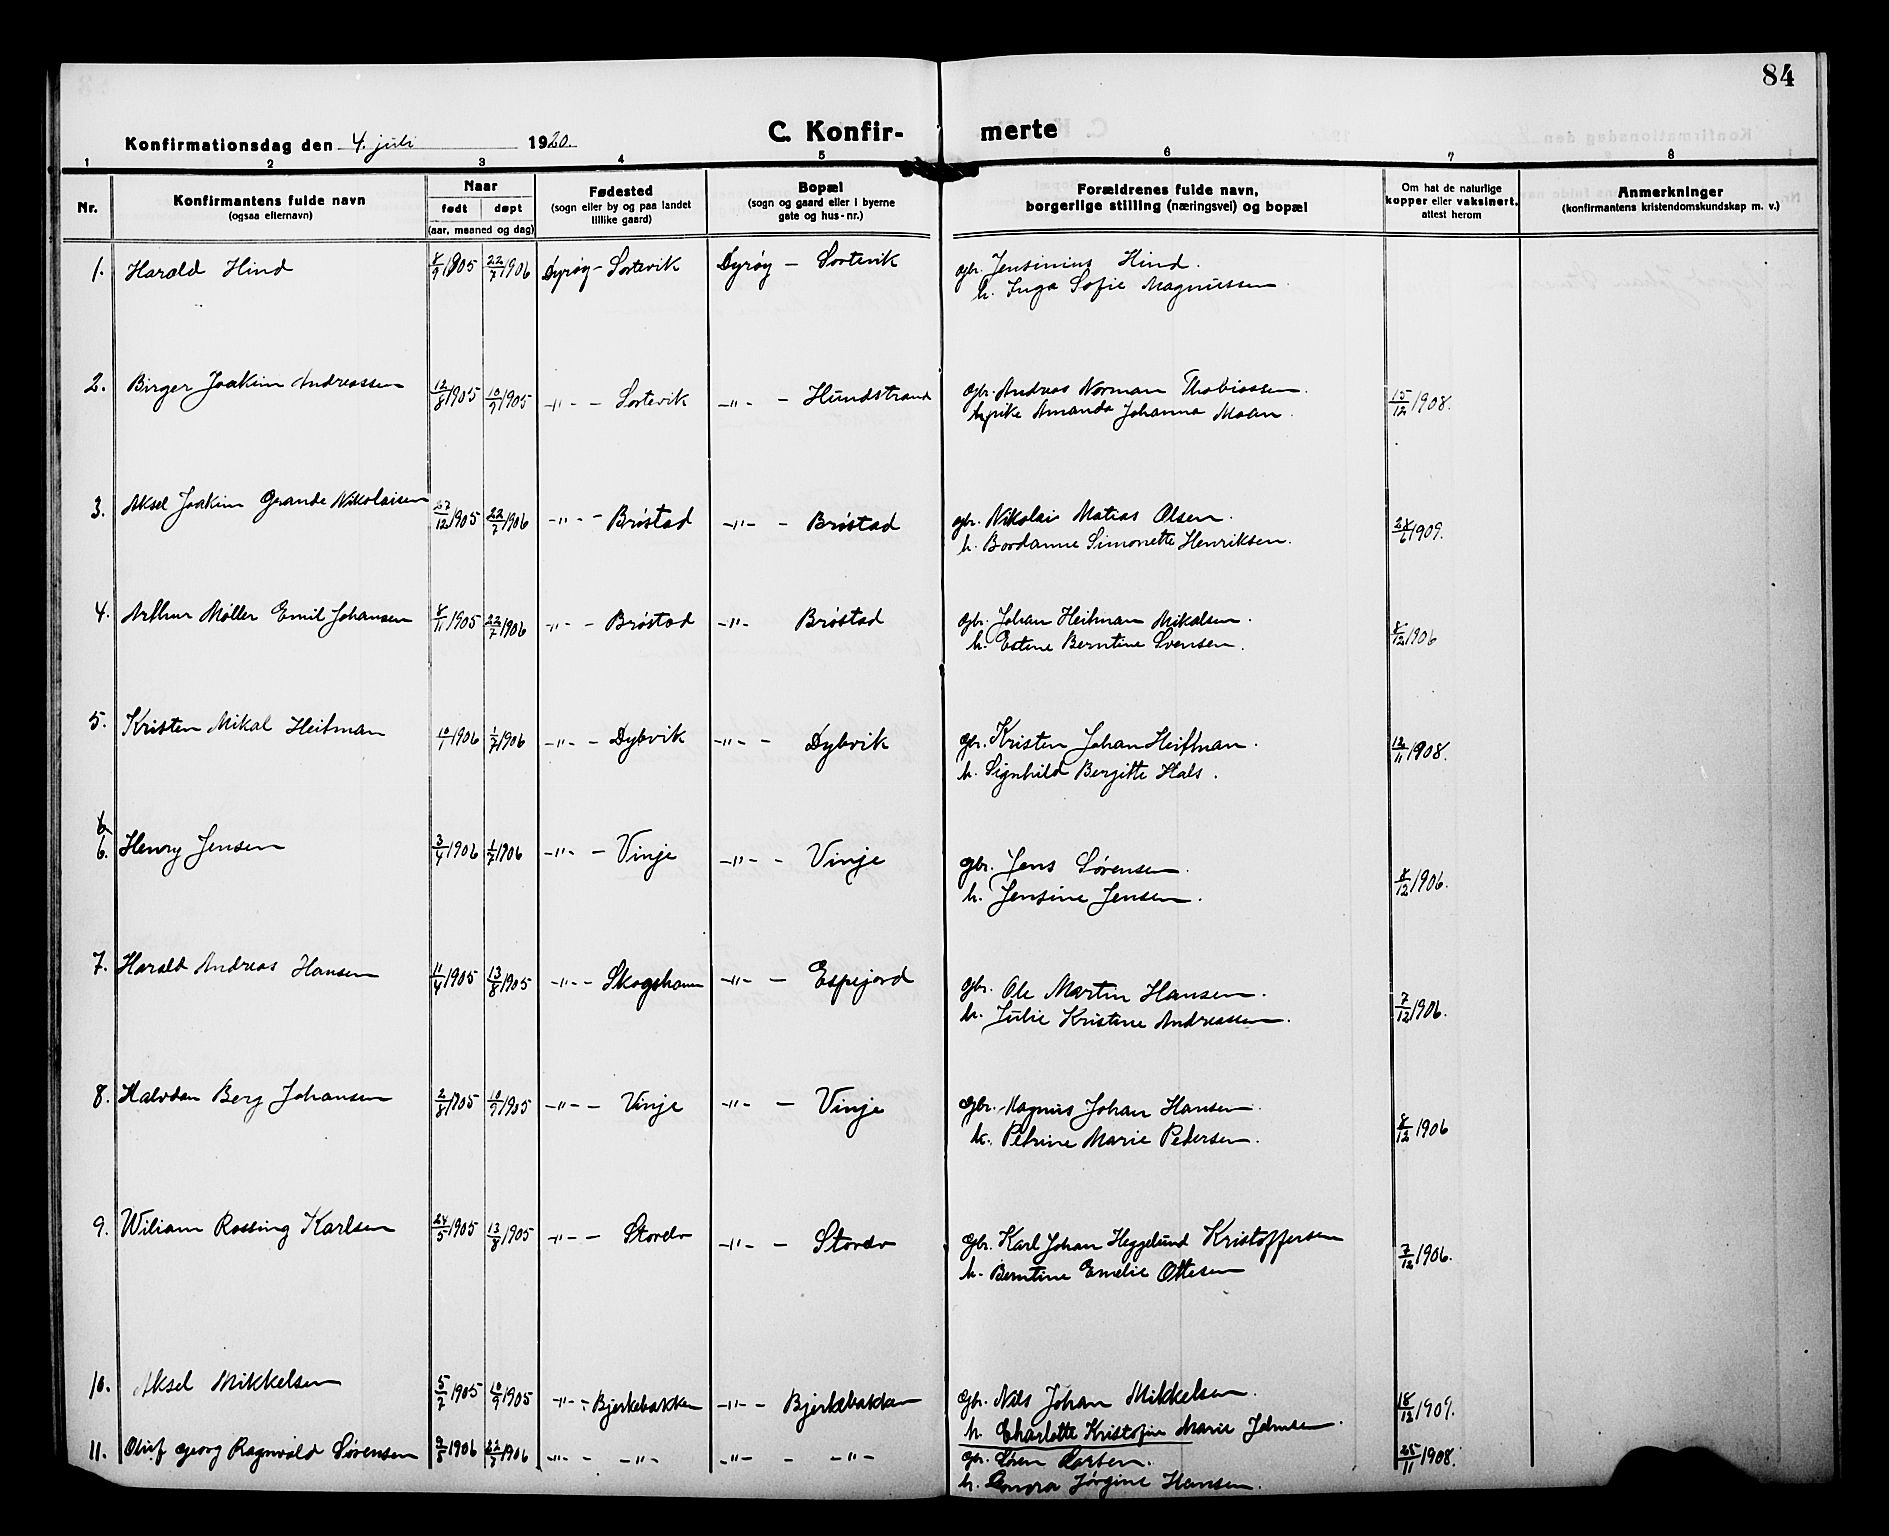 84
Konfirmationsdag den 4. juli 1920.
C. Konfir- merte
1 2 3 4 5 6 7 8
Nr.
Konfirmantens fulde navn
(ogsaa efternavn)
Naar
født døpt
(aar, maaned og dag)
Fødested
(sogn eller by og paa landet
tillike gaard)
Bopæl
(sogn og gaard eller i byerne
gate og hus-nr.)
Forældrenes fulde navn,
borgerlige stilling (næringsvei) og bopæl
Om hat de naturlige
kopper eller vaksinert,
attest herom
Anmerkninger
(konfirmantens kristendomskundskap m. v.)
1. Harald Hind 8/9 1905 22/7 1906 Dyrøy - Sortevik Dyrøy - Sortevik gbr. Jensinius Hind.
h. Inga Sofie Magnussen.
2. Birger Joakim Andreassen 12/8 1905 10/9 1905 -"- - Sortevik -"- - Hundstrand gbr. Andreas Norman Thobiassen.
Amanda Johanna Moan. 15/12 1908.
3. Aksel Joakim Grande Nikolaisen 27/12 1905 22/7 1906 -"- - Brøstad -"- - Brøstad gbr. Nikolai Matias Olsen.
h. Bordanne Simonette Henriksen. 1909.
4. Arthur Møller Emil Johansen 8/11 1905 22/7 1906 -"- - Brøstad -"- Brøstad gbr. Johan Heitman Mikalsen.
h. Estine Berntine Svensen. 8/12 1906
5. Kristen Mikal Heitman 10/1 1906 1/7 1906 -"- - Dybvik -"- - Dybvik gbr. Kristen Johan Heitman.
h. Signhild Bergitte Hals. 12/11 1908.
6
6. Henry Jensen 3/4 1906 1/7 1906 -"- - Vinje -"- - Vinje gbr. Jens Sørensen.
h. Jensine Jensen. 8/12 1906.
7. Harald Andreas Hansen 11/4 1905 13/8 1905 -"- - Skogshamn -"- - Espejord gbr. Ole Martin Hansen.
h. Julie Kristine Andreassen. 7/12 1906.
8. Halvdan Berg Johansen 2/8 1905 10/9 1905 -"- - Vinje -"- - Vinje gbr. Magnus Johan Hansen.
h. Petrine Marie Pedersen. 8/12 1906
9. Wiliam Rossing Karlsen 24/5 1905 13/8 1905 -"- - -"- - gbr. Karl Johan Heggelund Kristoffersen
h. Berntine Emelie Ottesen 7/12 1906.
10. Aksel Mikkelsen 5/7 1905 10/9 1905 -"- - Bjerkebakken -"- - Bjerkebakken gbr. Nils Johan Mikkelsen.
h. Charlotte Kristofin Marie 18/12 1909.
11. Oluf Georg Ragnvald Sørensen 9/5 1906 22/7 1906 -"- - -"- -"- - -"- gbr. Søren.
h. Jørgine Hansen. 25/11 1908.